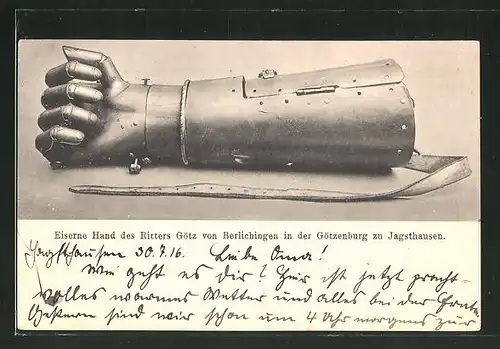 Eiserne Hand des Ritters Götz von Berlichingen in der Götzenburg zu Jagsthausen.
Jagsthausen 30.7.16. Liebe Oma!
Wie geht es dir? Hier ist jetzt pracht-
volles warmes Wetter und alles bei der Ernte
Gestern sind wir schon um 4 Uhr morgens zur